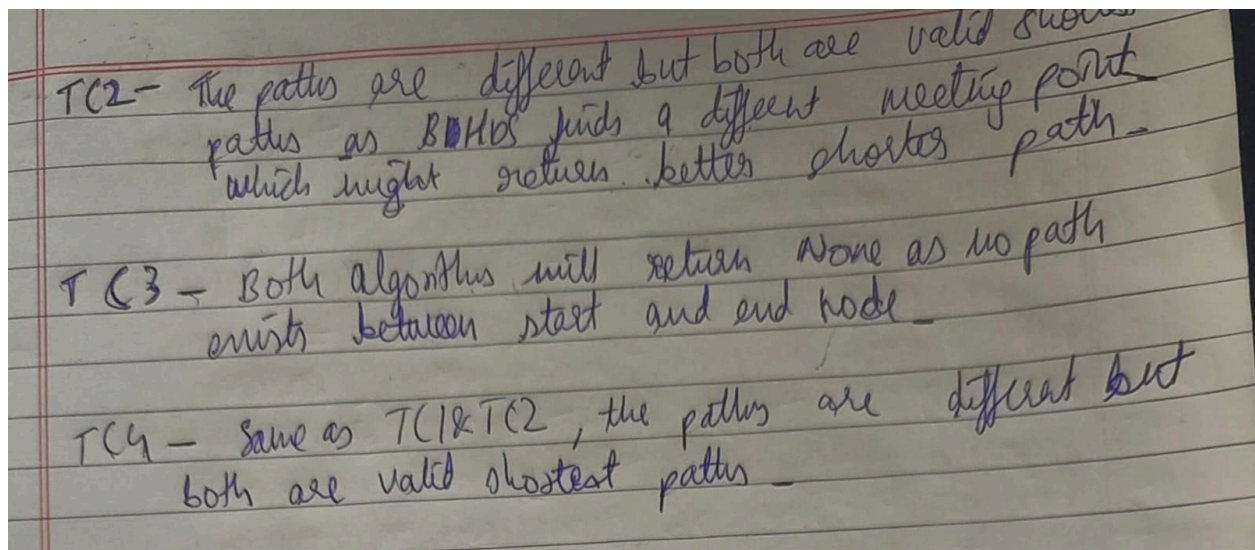 TC2 - The paths are different but both are valid
paths as BDHDS finds a different meeting point
which might return better shorter path.
TC3 - Both algoriths will return None as no path
exists between start and end node.
TC4 - Same as TC1 & TC2, the paths are different but
both are valid shortest paths.